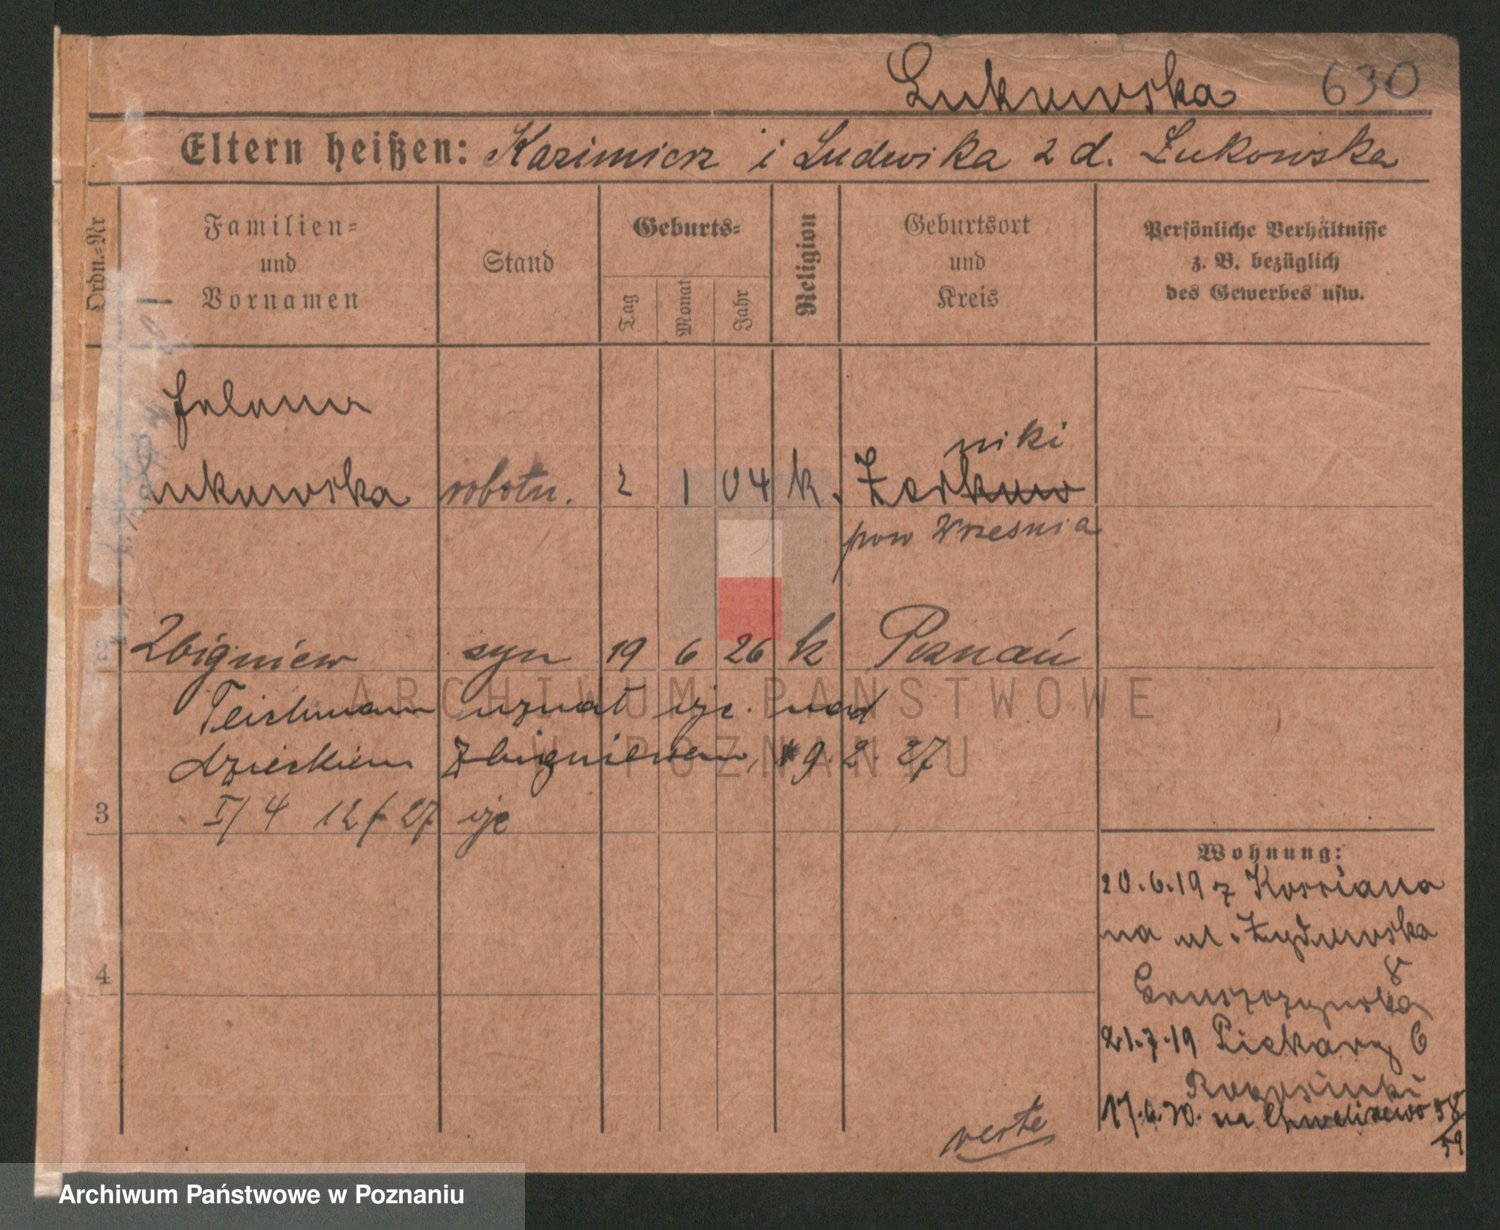 Łukowska 630
Eltern heißen: Kazimierz i Ludwika z d. Żukowska
Ordn.-Nr
Familien-
und
Vornamen
Stand
Geburts-
Tag
Monat
Jahr
Religion
Geburtsort
und
Kreis
Persönliche Verhältnisse
z. B. bezüglich
des Gewerbes usw.
1
Helena
niki
Łukowska robotn. 2 1 04 k. Żerkow
pow Września
2 Zbigniew syn 19 6 26 k Poznań
Teichmann uznał nad
dzieckiem Zbigniewem, * 9. 2. 27
3 I/4 27
4
Wohnung:
20.6.19 z Kościana
na ul. Żydowska
8
21.7.19 Piekary 6
17.6.20. na Chwaliszewo 58/59
verte
ARCHIWUM PAŃSTWOWE
W POZNANIU
Archiwum Państwowe w Poznaniu